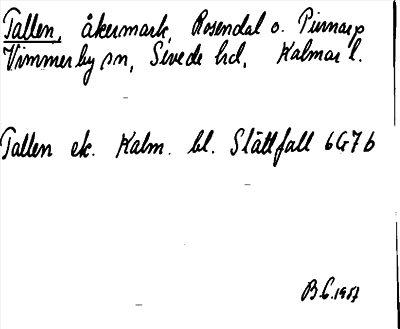 Tallen, åkermark, Rosendal o. Pirnarp
Vimmerby sn, Sevede hd, Kalmar l.
Tallen ek. Kalm. bl. Slättfall 6G7b
B.G. 1957